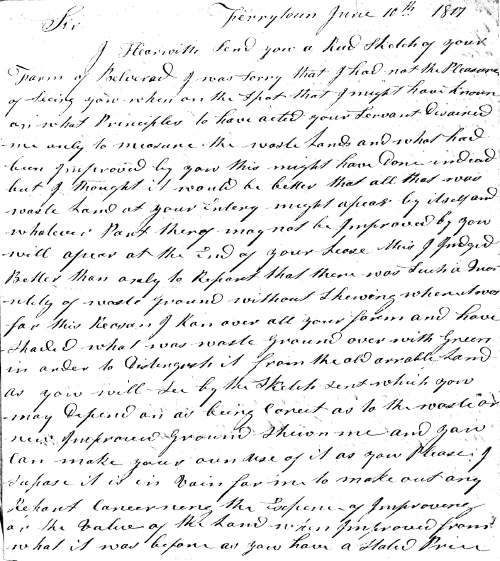 Sir Ferrytoun June 10th 1817
I Hearwith Send you a Rud Sketch of your
Farm of Belverad I was Sorry that I had not the Pleasure
of Seeing you when on the Spot that I might have known
on what Principles to have acted your Servant Desaired
me only to measure the waste Lands and what had
been Improved by you this might have Done indead
but I thought it would be better that all that was
waste Land at your Entery might apear by itself and
whatever Part therof may not be Improved by you
will apear at the End of your Lease this I Judged
Better than only to Report that there was Such a Quan
ntity of waste ground without Shewing where it was
for this Reason I Ran over all your farm and have
Shaded what was waste Ground over with Green
in order to Distingush it from the old arrable Land
as you will See by the Sketch Sent which you
may Depend on as being Corect as to the waste or
new Improved Ground Shewn me and you
Can make your own use of it as you Please I
Supose it is in Vain for me to make out any
Report Concerning the Expence of Improving
or the Value of the Land when Improved from
what it was before as you have a Stated Price